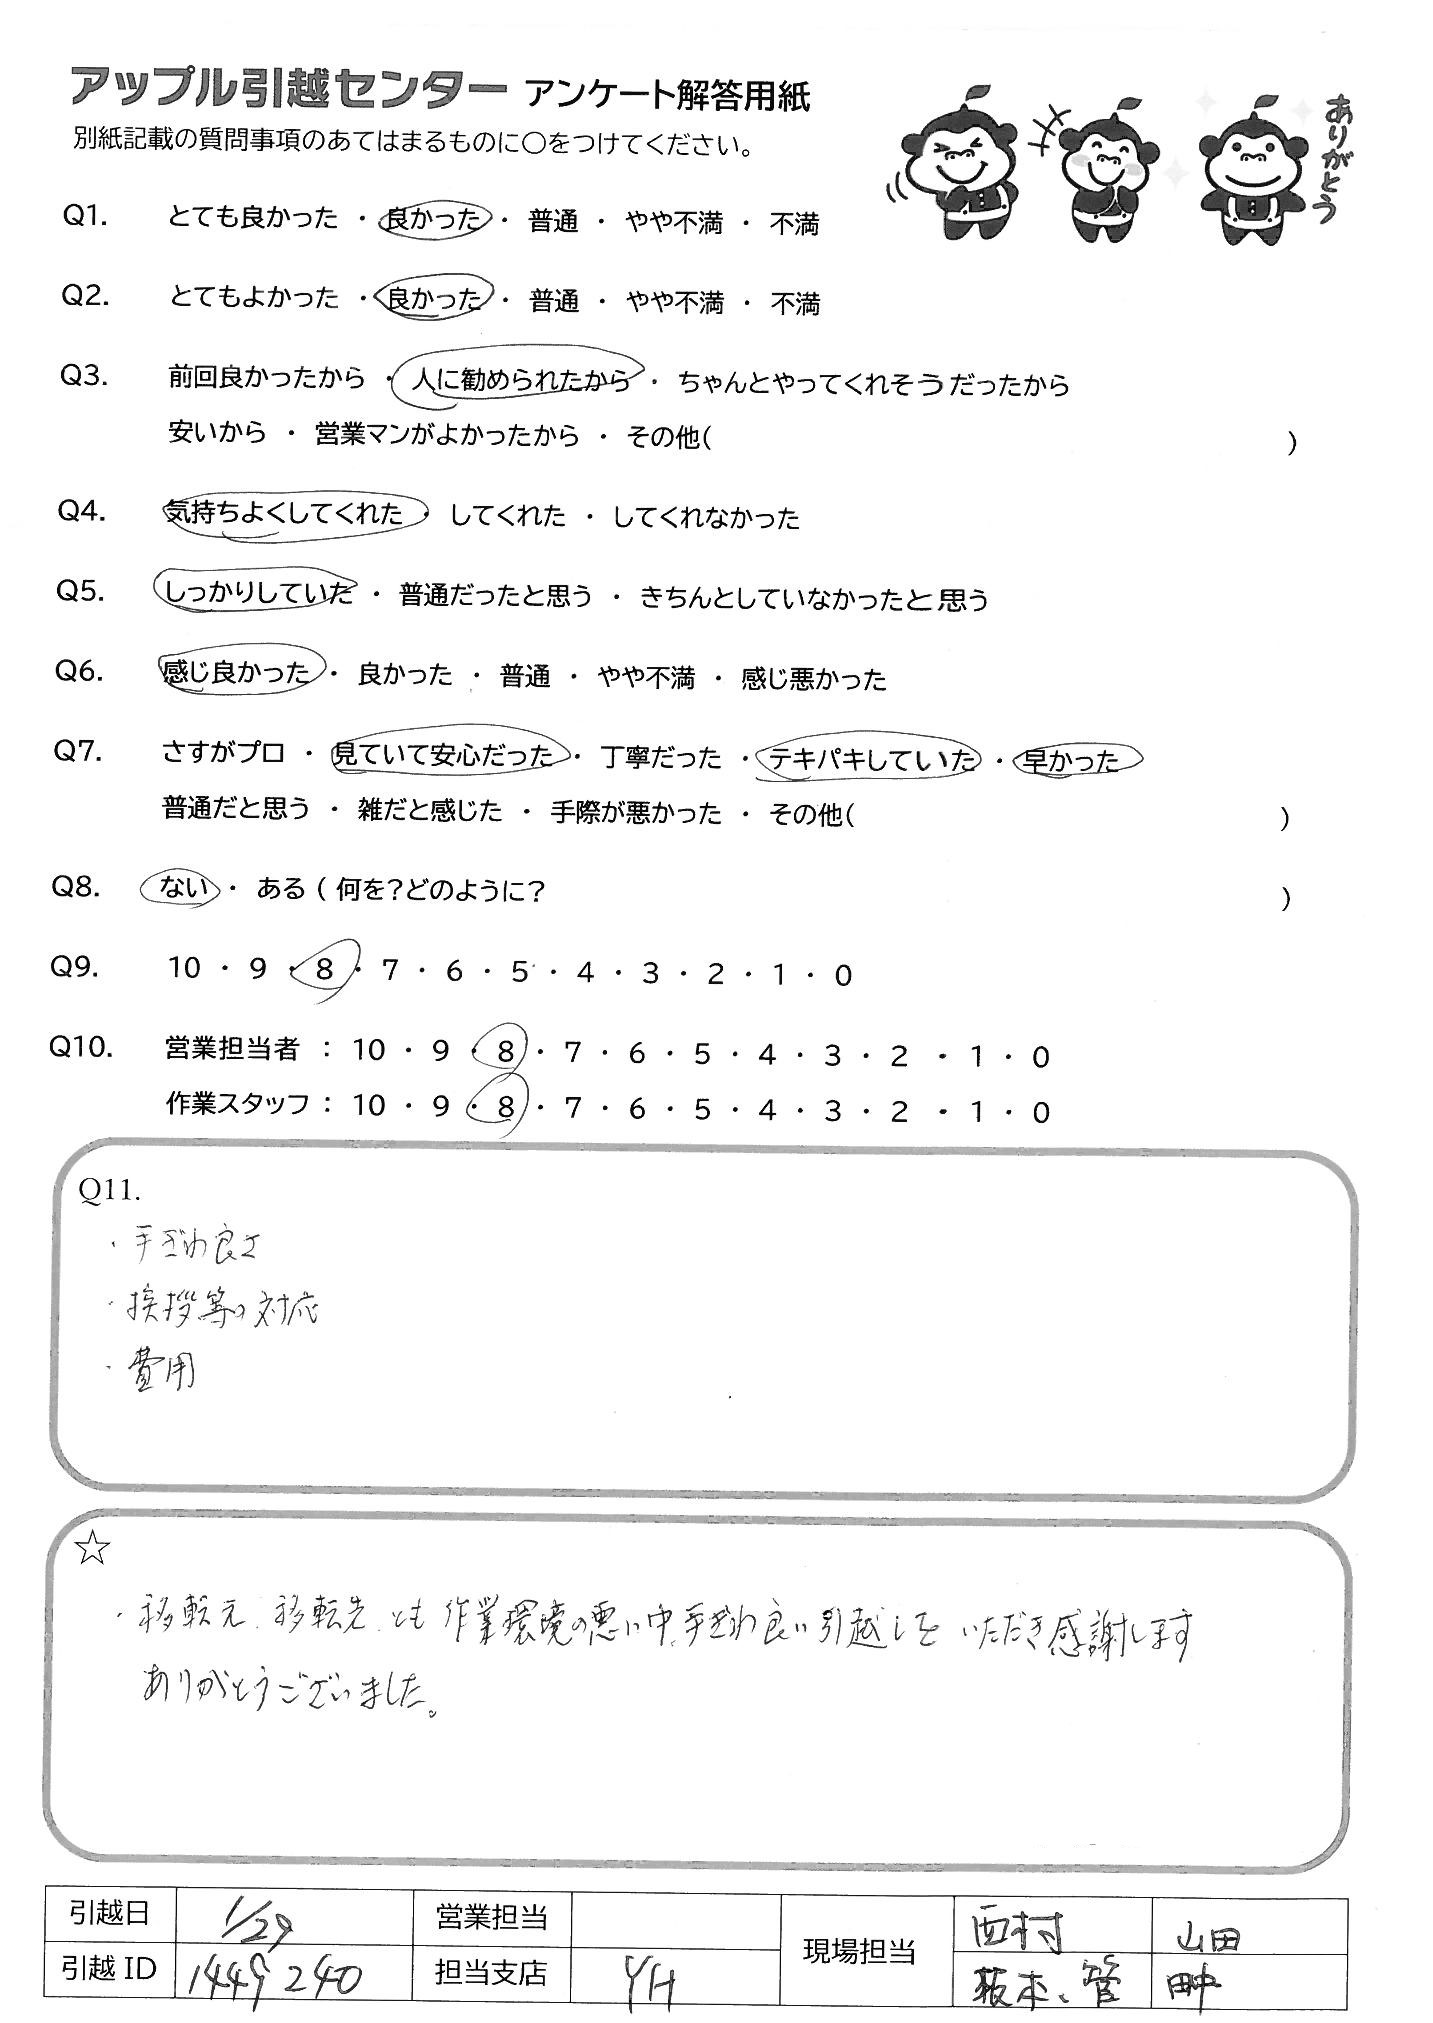 アップル引越センター アンケート解答用紙
別紙記載の質問事項のあてはまるものに○をつけてください。
ありがとう
Q1. とても良かった ・ 良かった ・ 普通 ・ やや不満 ・ 不満
Q2. とてもよかった ・ 良かった ・ 普通 ・ やや不満 ・ 不満
Q3. 前回良かったから ・ 人に勧められたから ・ ちゃんとやってくれそうだったから
安いから ・ 営業マンがよかったから ・ その他( )
Q4. 気持ちよくしてくれた ・ してくれた ・ してくれなかった
Q5. しっかりしていた ・ 普通だったと思う ・ きちんとしていなかったと思う
Q6. 感じ良かった ・ 良かった ・ 普通 ・ やや不満 ・ 感じ悪かった
Q7. さすがプロ ・ 見ていて安心だった ・ 丁寧だった ・ テキパキしていた ・ 早かった
普通だと思う ・ 雑だと感じた ・ 手際が悪かった ・ その他( )
Q8. ない ・ ある ( 何を?どのように? )
Q9. 10 ・ 9 ・ 8 ・ 7 ・ 6 ・ 5 ・ 4 ・ 3 ・ 2 ・ 1 ・ 0
Q10. 営業担当者 : 10 ・ 9 ・ 8 ・ 7 ・ 6 ・ 5 ・ 4 ・ 3 ・ 2 ・ 1 ・ 0
作業スタッフ : 10 ・ 9 ・ 8 ・ 7 ・ 6 ・ 5 ・ 4 ・ 3 ・ 2 ・ 1 ・ 0
Q11.
・手ぎわ良さ
・挨拶等の対応
・費用
☆
・移転元、移転先、とも作業環境の悪い中、手ぎわ良い引越しをいただき感謝します
ありがとうございました。
引越日 1/29 営業担当 現場担当 西村 山田
引越ID 1449240 担当支店 YH 菅 田中